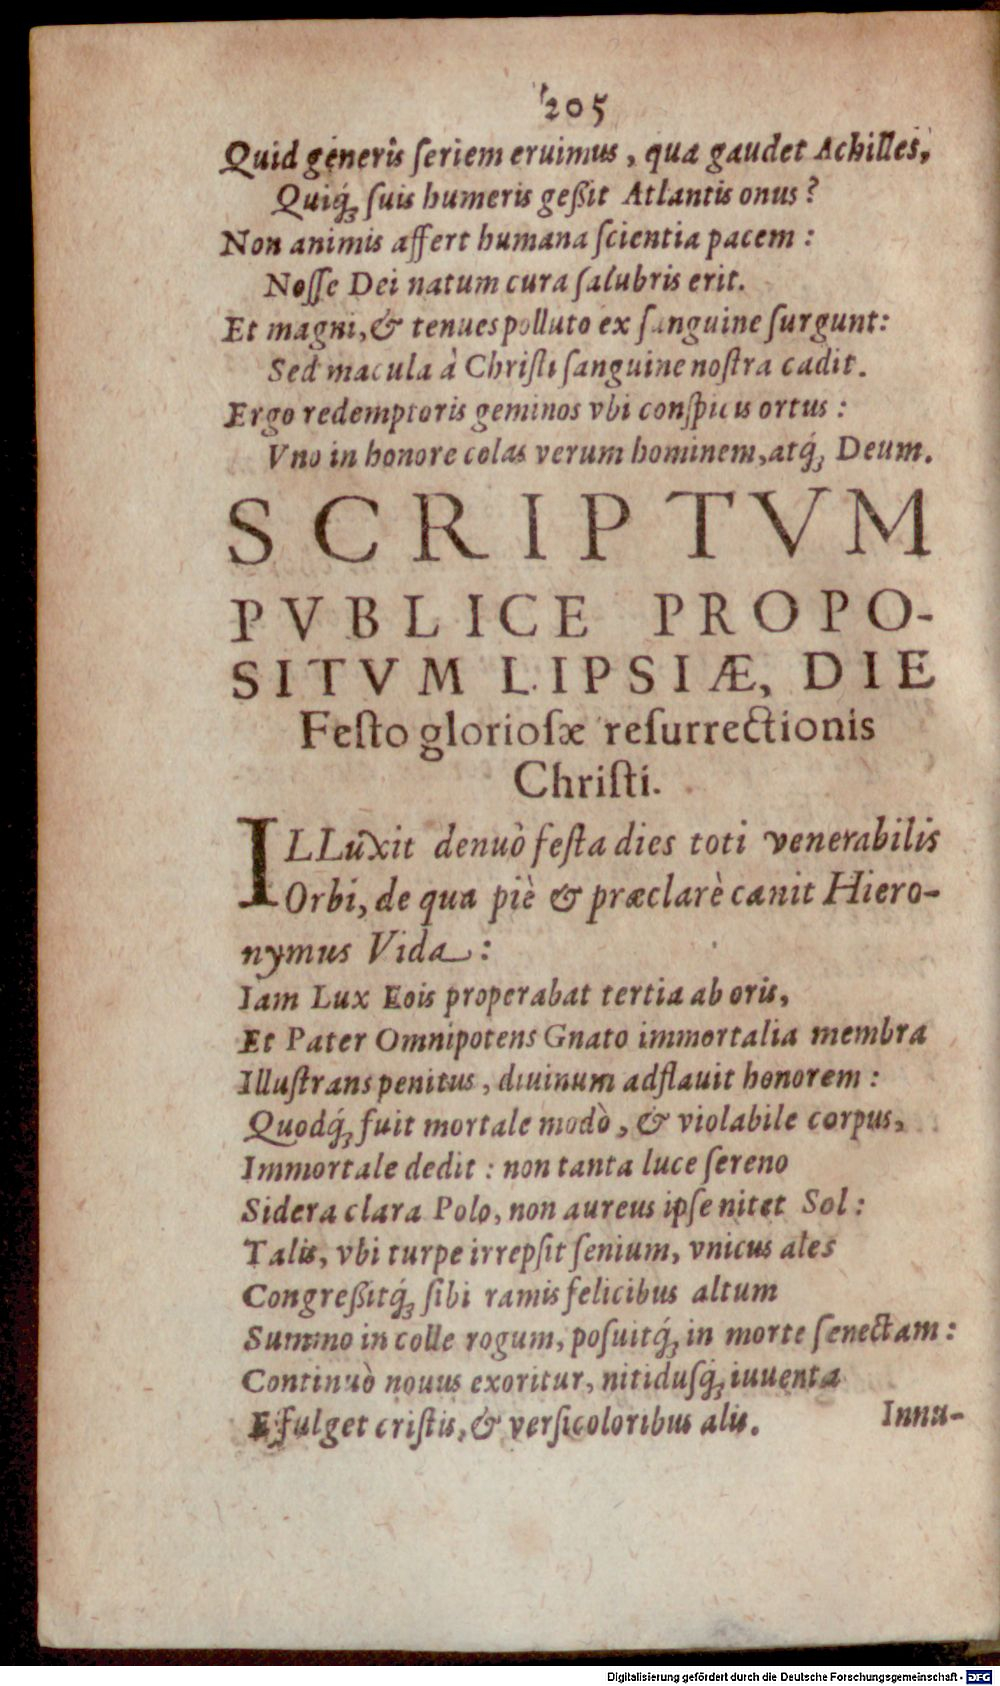 205
Quid generis ſeriem eruimus, qua gaudet Achilles,
Quiq́ꝫ ſuis humeris geßit Atlantis onus?
Non animis affert humana ſcientia pacem:
Noſſe Dei natum cura ſalubris erit.
Et magni, & tenues polluto ex ſanguine ſurgunt:
Sed macula à Chriſti ſanguine noſtra cadit.
Ergo redemptoris geminos vbi conſpicis ortus:
Vno in honore colas verum hominem, atq́ꝫ Deum.
SCRIPTVM
PVBLICE PROPO-
SITVM LIPSIÆ, DIE
Feſto glorioſæ reſurrectionis
Chriſti.
ILLuxit denuò feſta dies toti venerabilis
Orbi, de qua piè & præclarè canit Hiero-
nymus Vida:
Iam Lux Eois properabat tertia ab oris,
Et Pater Omnipotens Gnato immortalia membra
Illuſtrans penitus, diuinum adflauit honorem:
Quodq́ꝫ fuit mortale modò, & violabile corpus,
Immortale dedit: non tanta luce ſereno
Sidera clara Polo, non aureus ipſe nitet Sol:
Talis, vbi turpe irrepſit ſenium, vnicus ales
Congreßitq́ꝫ ſibi ramis felicibus altum
Summo in colle rogum, poſuitq́ꝫ in morte ſenectam:
Continuò nouus exoritur, nitiduſq́ꝫ iuuenta
Effulget criſtis, & verſicoloribus alis.
Innu-
Digitalisierung gefördert durch die Deutsche Forschungsgemeinschaft - DFG